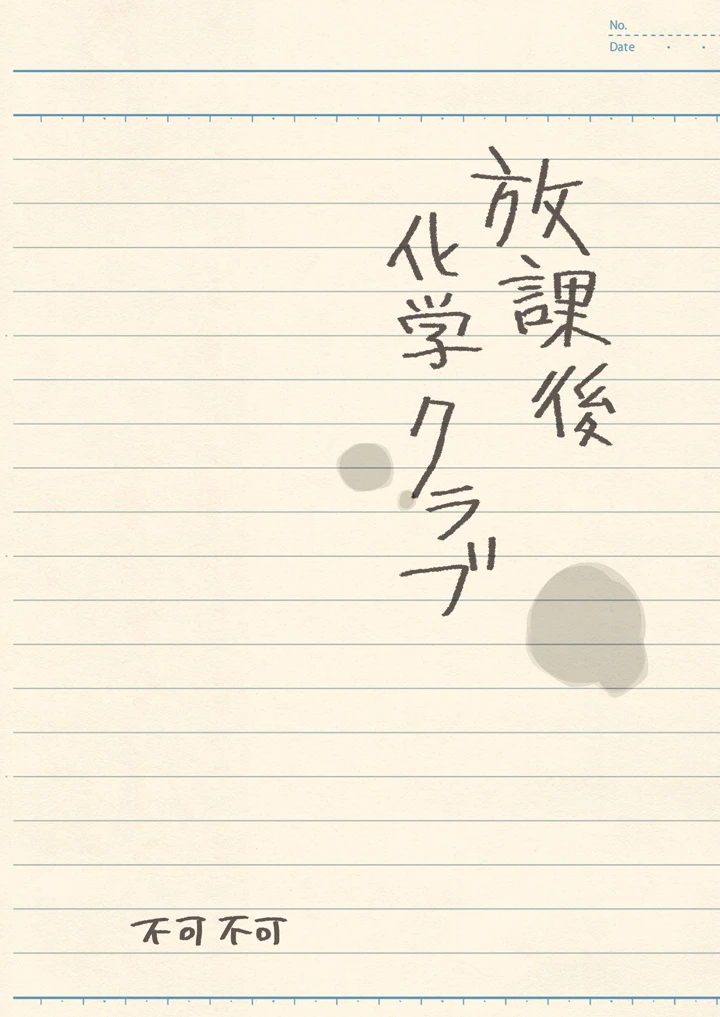 No.
Date
放課後
化学クラブ
不可 不可